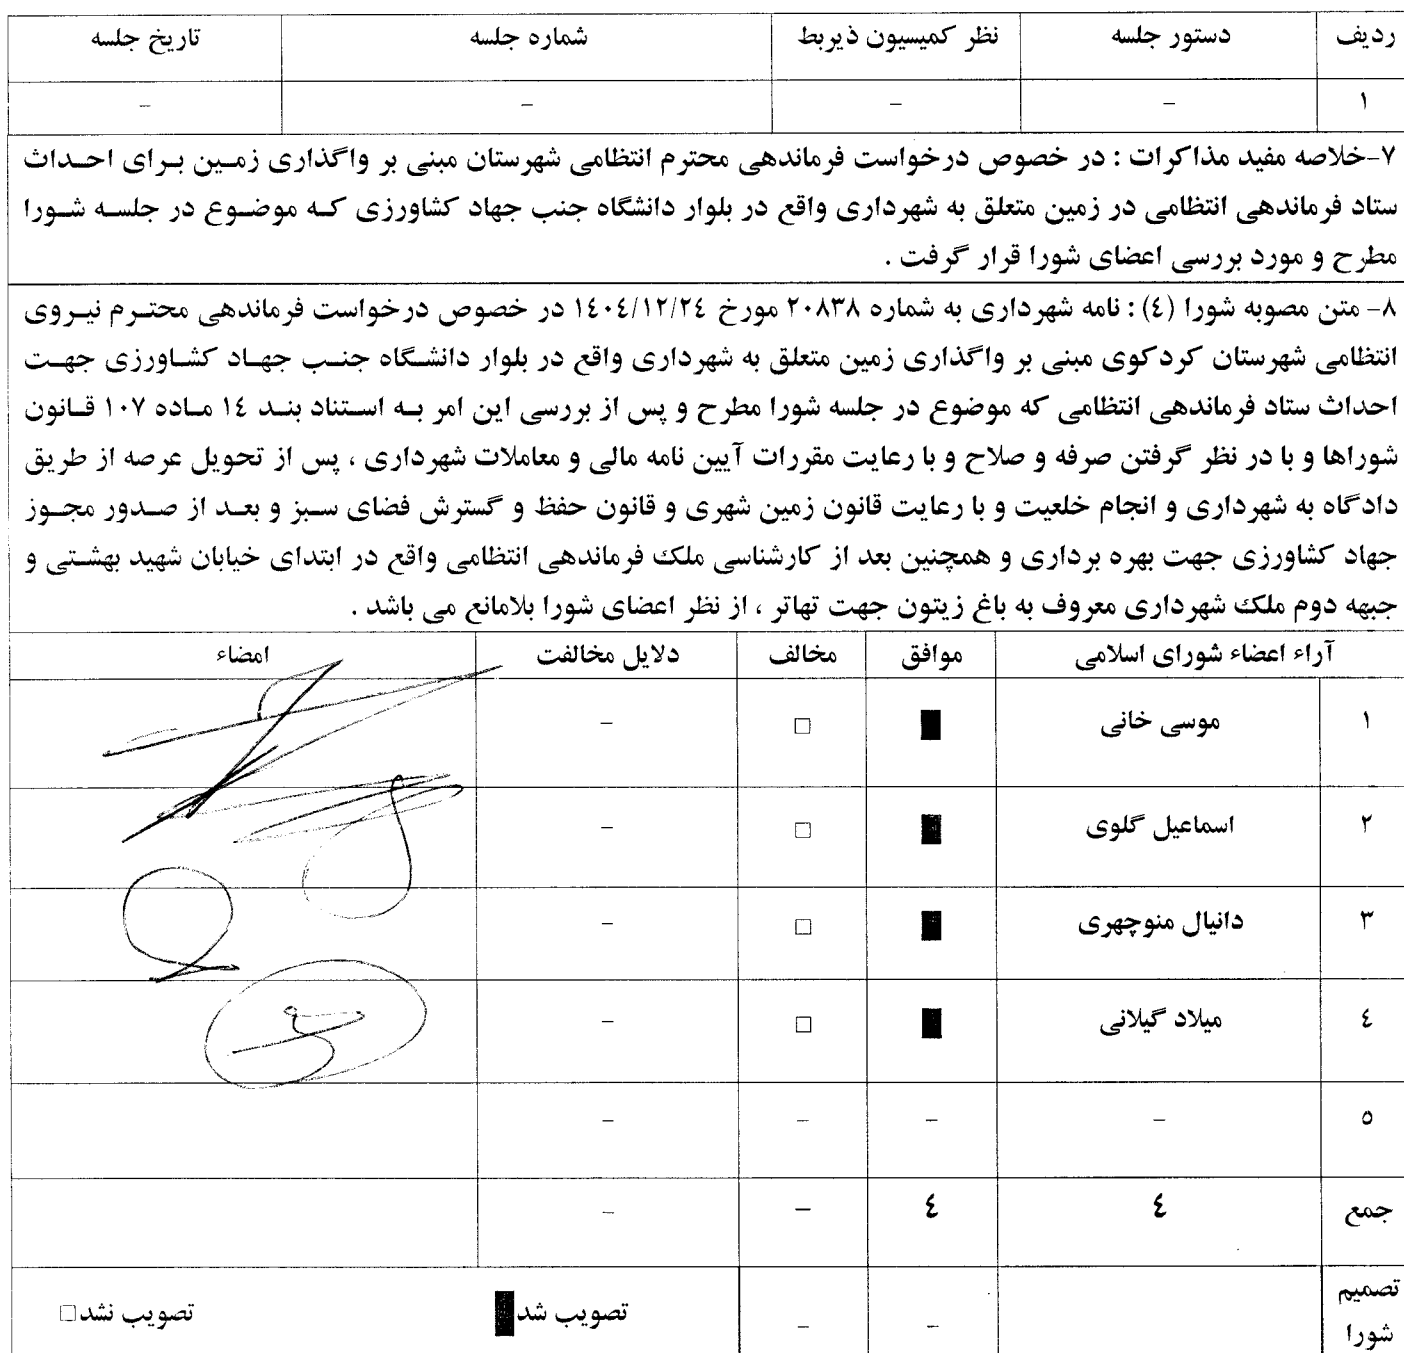 ردیف دستور جلسه نظر کمیسیون ذیربط شماره جلسه تاریخ جلسه
۱ – – – –
۷-خلاصه مفید مذاکرات : در خصوص درخواست فرماندهی محترم انتظامی شهرستان مبنی بر واگذاری زمـین بـرای احـداث
ستاد فرماندهی انتظامی در زمین متعلق به شهرداری واقع در بلوار دانشگاه جنب جهاد کشاورزی کـه موضـوع در جلسـه شـورا
مطرح و مورد بررسی اعضای شورا قرار گرفت .
۸- متن مصوبه شورا (٤) : نامه شهرداری به شماره ۲۰۸۳۸ مورخ ۱٤۰٤/۱۲/۲٤ در خصوص درخواست فرماندهی محتـرم نیـروی
انتظامی شهرستان کردکوی مبنی بر واگذاری زمین متعلق به شهرداری واقع در بلوار دانشـگاه جنـب جهـاد کشـاورزی جهـت
احداث ستاد فرماندهی انتظامی که موضوع در جلسه شورا مطرح و پس از بررسی این امر بـه اسـتناد بنـد ۱٤ مـاده ۱۰۷ قـانون
شوراها و با در نظر گرفتن صرفه و صلاح و با رعایت مقررات آیین نامه مالی و معاملات شهرداری ، پس از تحویل عرصه از طریق
دادگاه به شهرداری و انجام خلعیت و با رعایت قانون زمین شهری و قانون حفظ و گسترش فضای سـبز و بعـد از صـدور مجـوز
جهاد کشاورزی جهت بهره برداری و همچنین بعد از کارشناسی ملک فرماندهی انتظامی واقع در ابتدای خیابان شهید بهشـتی و
جبهه دوم ملک شهرداری معروف به باغ زیتون جهت تهاتر ، از نظر اعضای شورا بلامانع می باشد .
آراء اعضاء شورای اسلامی موافق مخالف دلایل مخالفت امضاء
۱ موسی خانی ■ □ –
۲ اسماعیل گلوی ■ □ –
۳ دانیال منوچهری ■ □ –
٤ میلاد گیلانی ■ □ –
٥ – – – –
جمع ٤ ٤ – –
تصمیم شورا – – تصویب شد■ تصویب نشد□